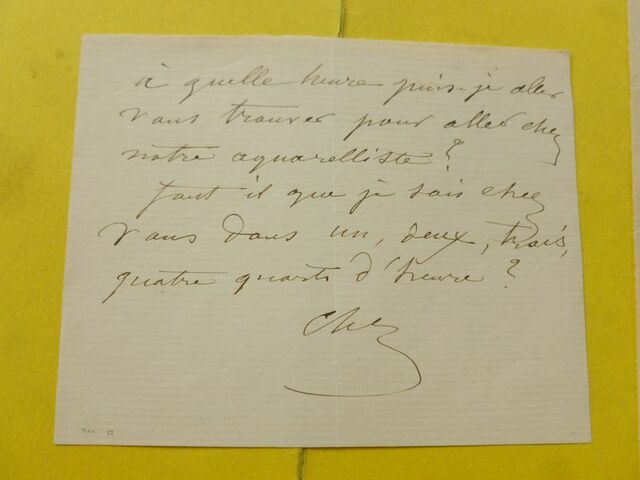 à quelle heure puis-je aller
vous trouver pour aller chez
notre aquarelliste ?
faut il que je sois chez
vous dans un, deux, trois,
quatre quarts d'heure ?